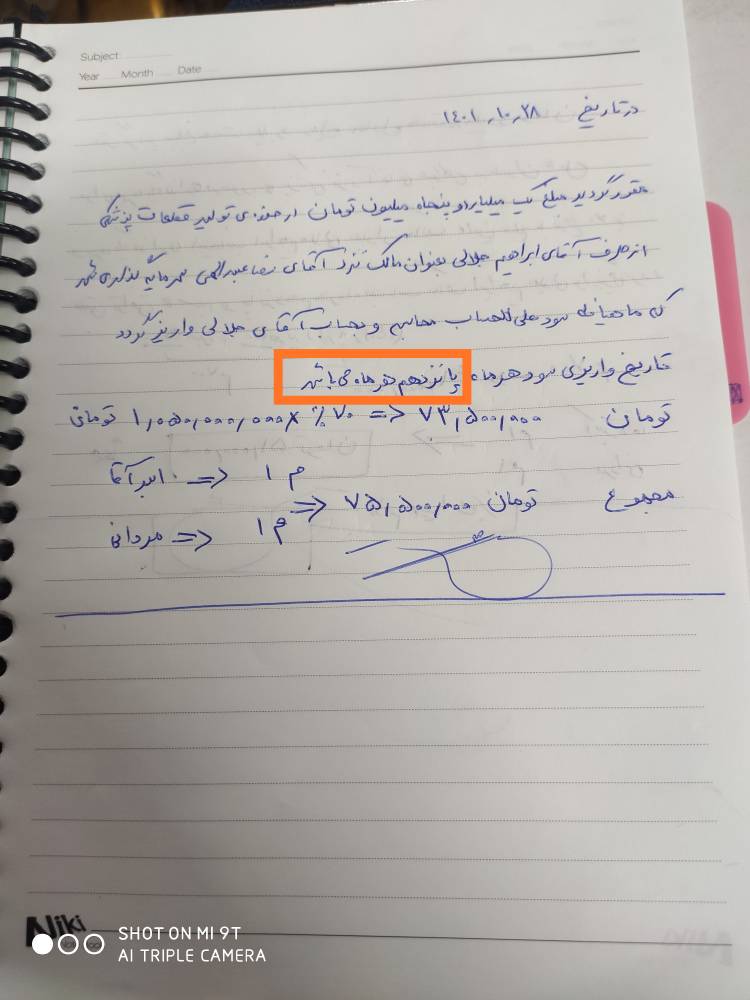 Subject
Year Month Date
در تاریخ ۱۴۰۱٫۱۰٫۲۸
مقرر گردید مبلغ یک میلیارد و پنجاه میلیون تومان در حوزه ی تولید قطعات پزشکی
از طرف آقای ابراهیم جلالی بعنوان مالک نزد آقای رضا عبدالهی سرمایه گذاری شد
که ماهیانه سود علی الحساب محاسبه و بحساب آقای جلالی واریز گردد
تاریخ واریزی سود هر ماه پانزدهم هر ماه می باشد
۱,۰۵۰,۰۰۰,۰۰۰ × ٪ ۷۰ => ۷۳,۵۰۰,۰۰۰ تومان
۱ م <=
مجموع ۷۵,۵۰۰,۰۰۰ تومان <=
۱ م <= مردانی
Niki
SHOT ON MI 9T
AI TRIPLE CAMERA